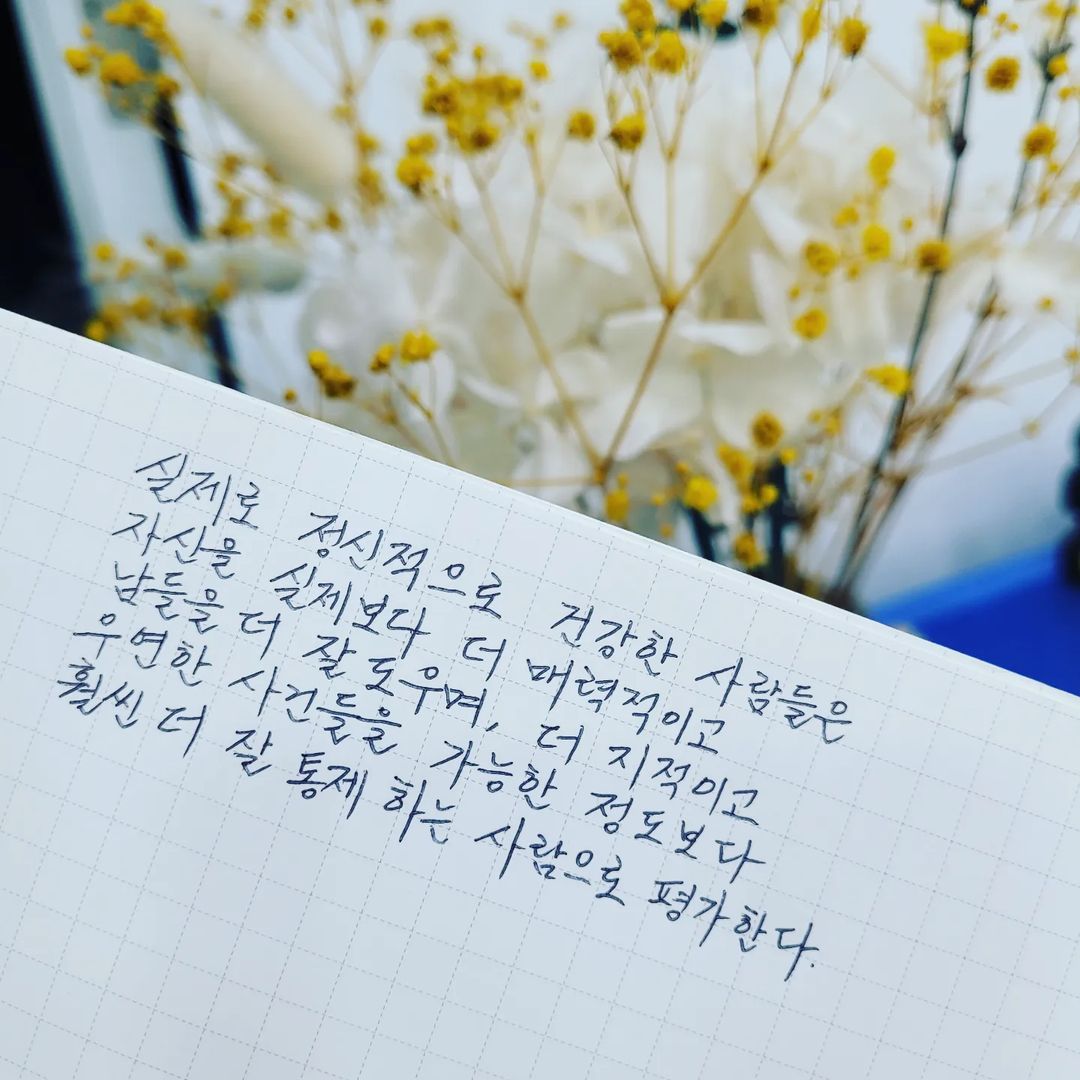 실제로 정신적으로 건강한 사람들은
자산을 실제보다 더 매력적이고
남들을 더 잘 도우며, 더 지적이고
우연한 사건들을 가능한 정도보다
훨씬 더 잘 통제 하는 사람으로 평가한다.